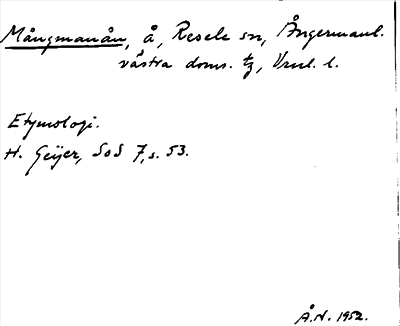 Mångmanån, å, Resele sn, Ångermanl.
västra doms. tg, Vrnl. l.
Etymologi.
H. Geijer, SoS 7, s. 53.
Å.N. 1952.